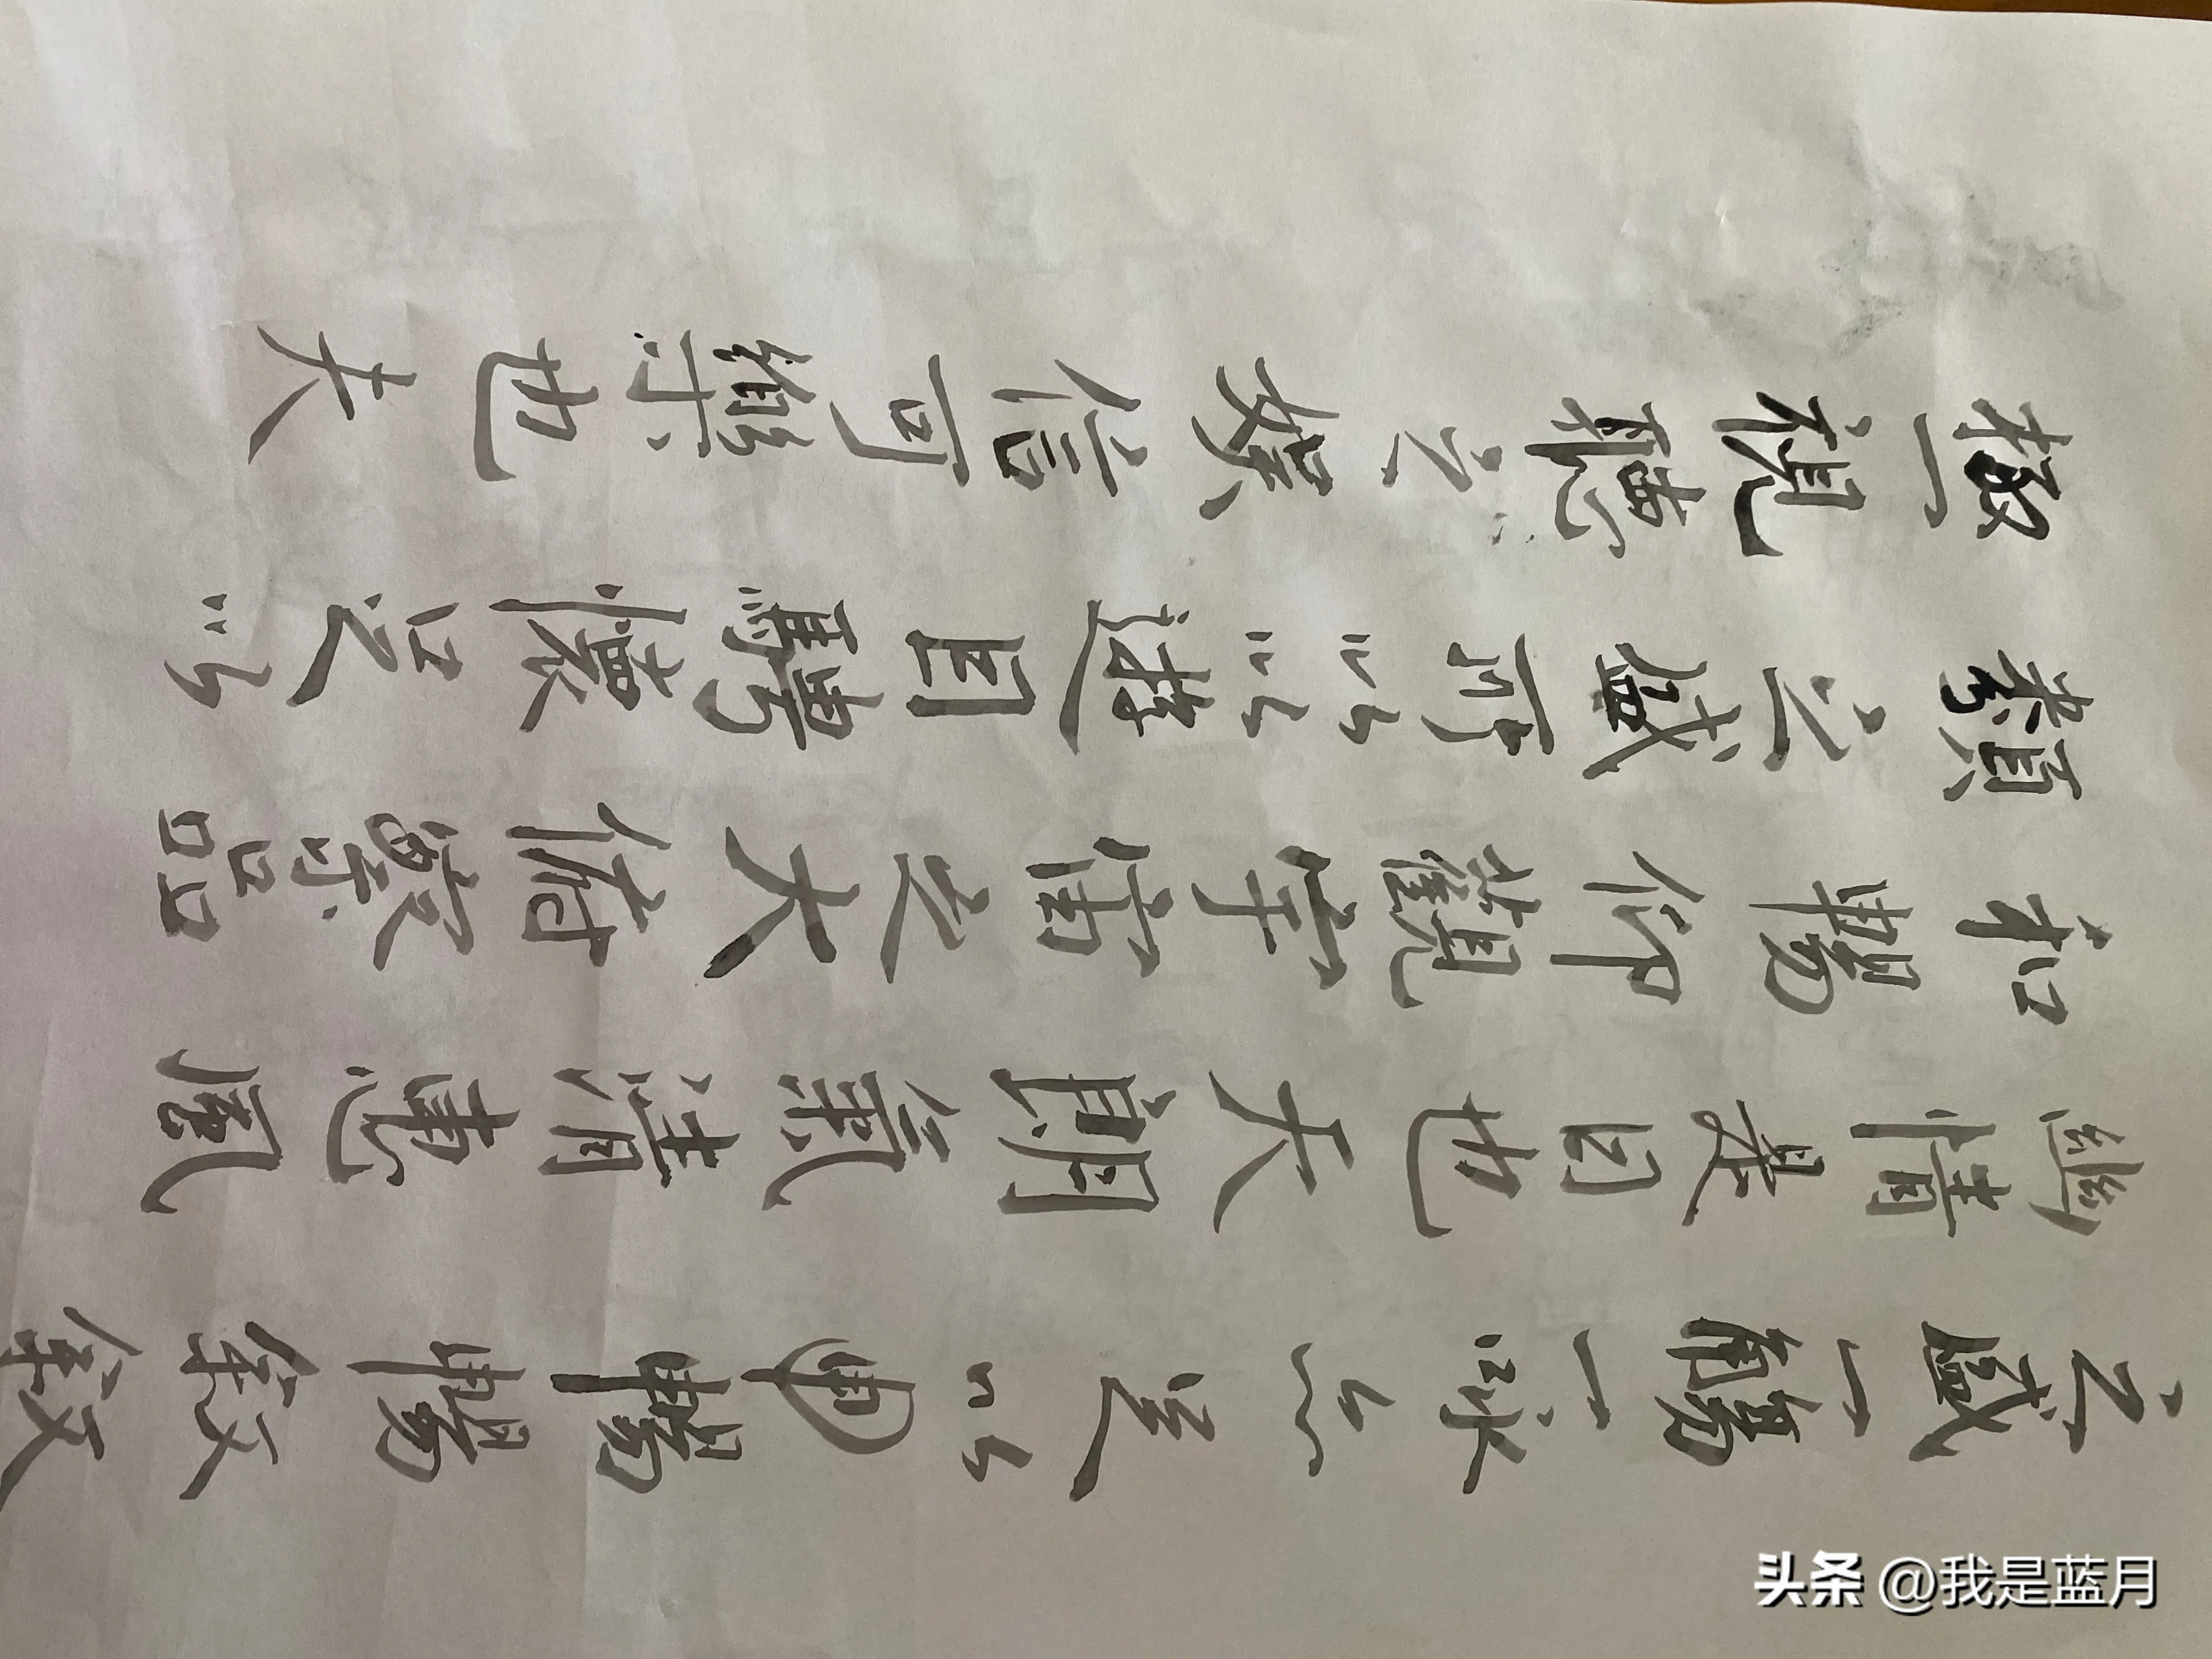 之盛一觴一詠亦足以暢暢敘敘
幽情是日也天朗氣清惠風
和暢仰觀宇宙之大俯察品
類之盛所以遊目騁懷足以
極視聽之娛信可樂也夫
头条 @我是蓝月